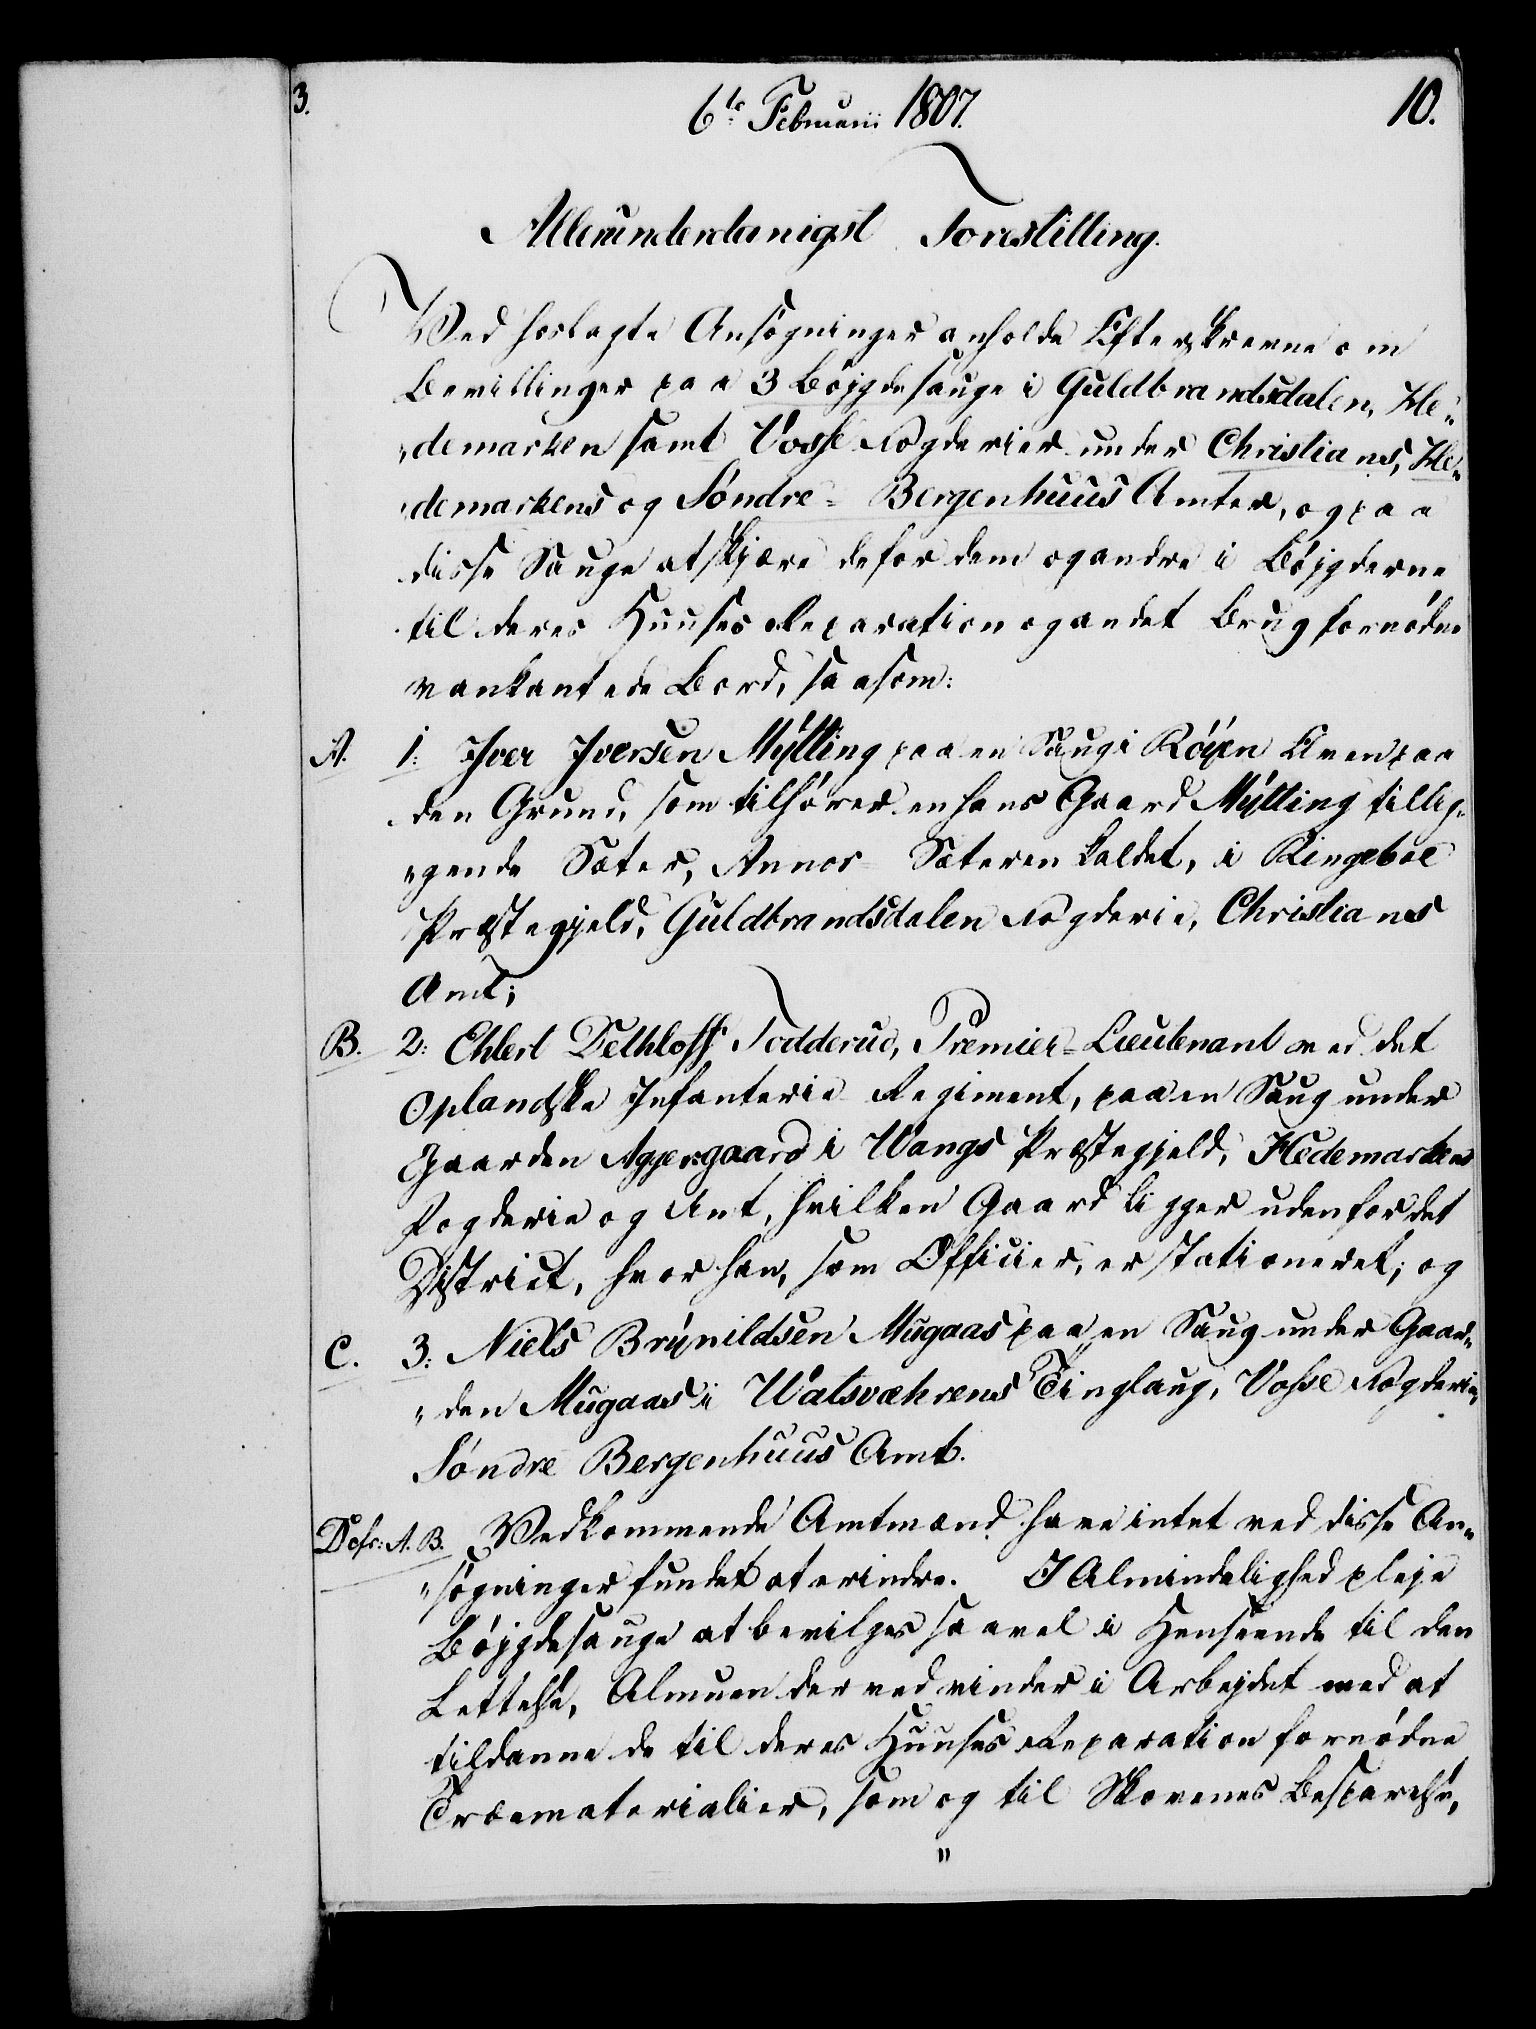 3.
6te Februarii 1807.
10.
Allerunderdanigst Forestilling.
Ved hoslagte Ansøgninger anholde Efterskrevne om
Bevillinger paa 3 Bøjgdesauge i Guldbrandsdalen, He„
„demarken samt Vosse Fogderier under Christians, He„
„demarkens og Søndre- Bergenhuus Amter, og paa
disse Sauge at skjære de for dem og andre i Bøjgderne
til deres Huuses Reparation og andet Brug fornødne
vankantede Bord, saasom:
A. 1: Iver Iversen Mýtting paa en Saug i Aaen paa
den Grund, som tilhører en hans Gaard Mýtting tillig„
„gende Sæter, Annor- Sæteren kaldet, i Ringeboe
Præstegjeld, Guldbrandsdalen Fogderie, Christians
Amt;
B. 2: Ehlert Dethloff Todderud, Premier-Lieutenant ved det
Oplandske Infanterie Regiment, paa en Saug under
Gaarden Aggersgaard i Wangs Præstegjeld, Hedemarkens
Fogderie og Amt, hvilken Gaard ligger udenfor det
District, hvor han, som Officier, er stationeret; og
C. 3: Niels Brýnildsen Mugaas paa en Saug under Gaar„
„den Mugaas i Watsvæhrens Tinglaug, Vosse Fogderie,
Søndre Bergenhuus Amt.
A. B. Vedkommende Amtmænd have intet ved disse An„
„søgninger fundet at erindre. I Almindelighed pleje
Bøjgdesauge at bevilges saavel i Henseende til den
Lettelse, Almuen derved vinder i Arbejdet med at
tildanne de til deres Huuses Reparation fornødne
Træematerialier, som og til Skovenes Besparelse,
"